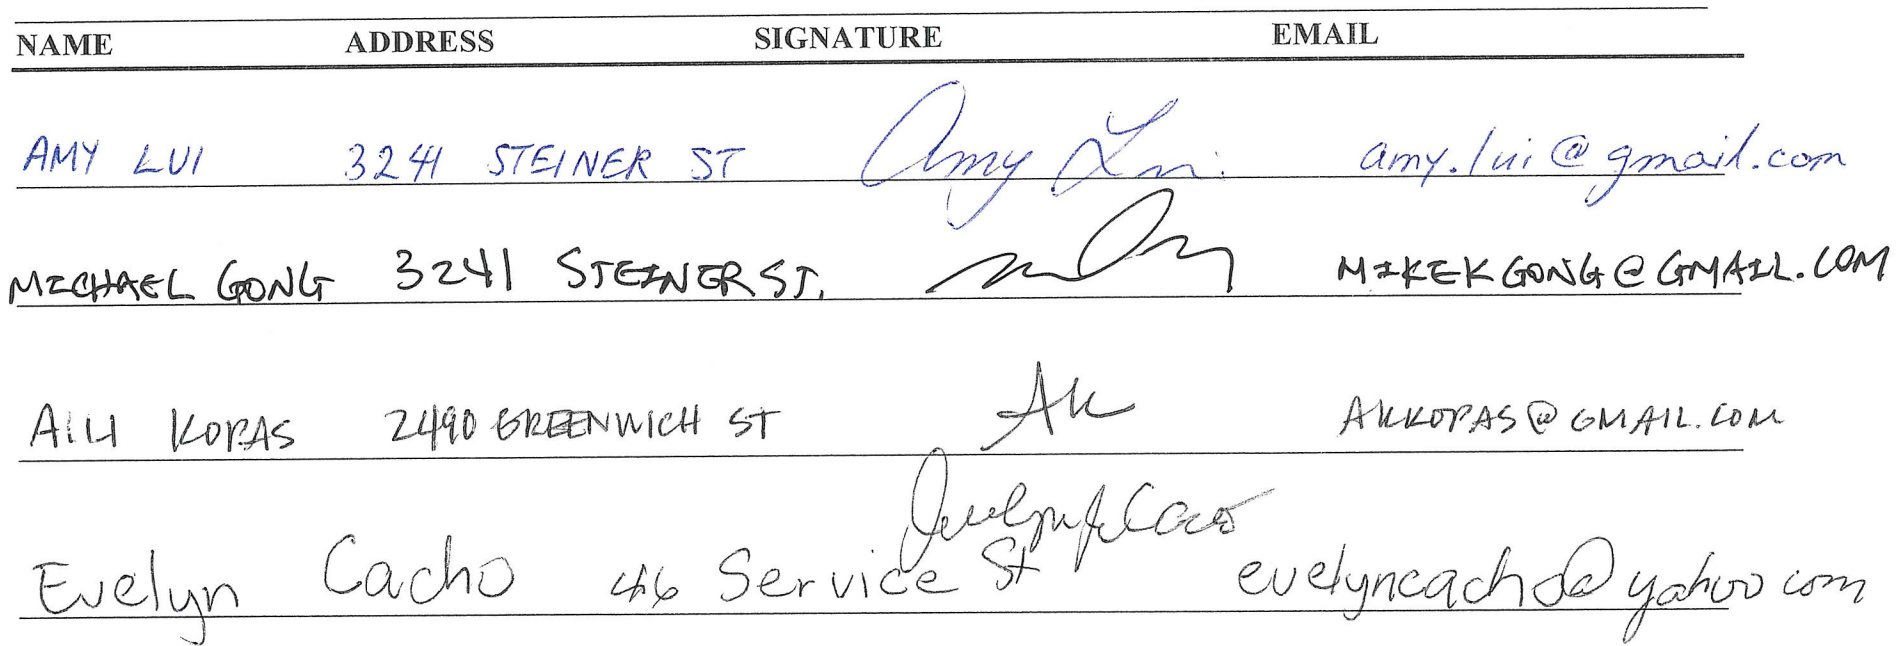 NAME ADDRESS SIGNATURE EMAIL
AMY LUI 3241 STEINER ST Amy Lui amy.lui@gmail.com
MICHAEL GONG 3241 STEINER ST. MIKEKGONG@GMAIL.COM
AILI KOPAS 2490 GREENWICH ST AK AKKOPAS@GMAIL.COM
Evelyn Cacho 46 Service St evelyncacho@yahoo com